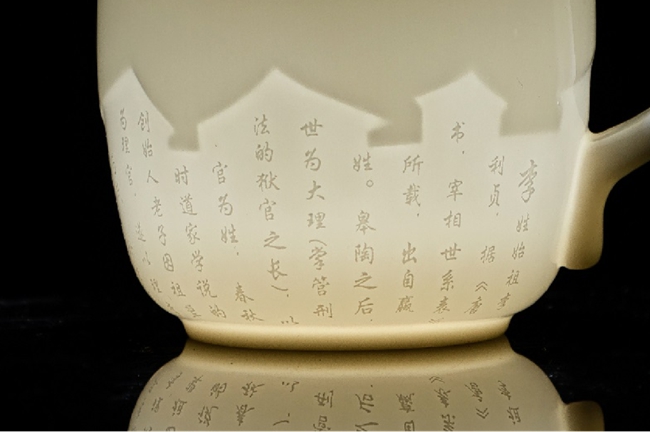 李姓始祖李
利贞，据《唐
书，宰相世系表
所载，出自嬴
姓。皋陶之后，
世为大理(掌管刑
法的狱官之长)，以
官为姓，春秋
时道家学说的
创始人老子因祖
为理官，